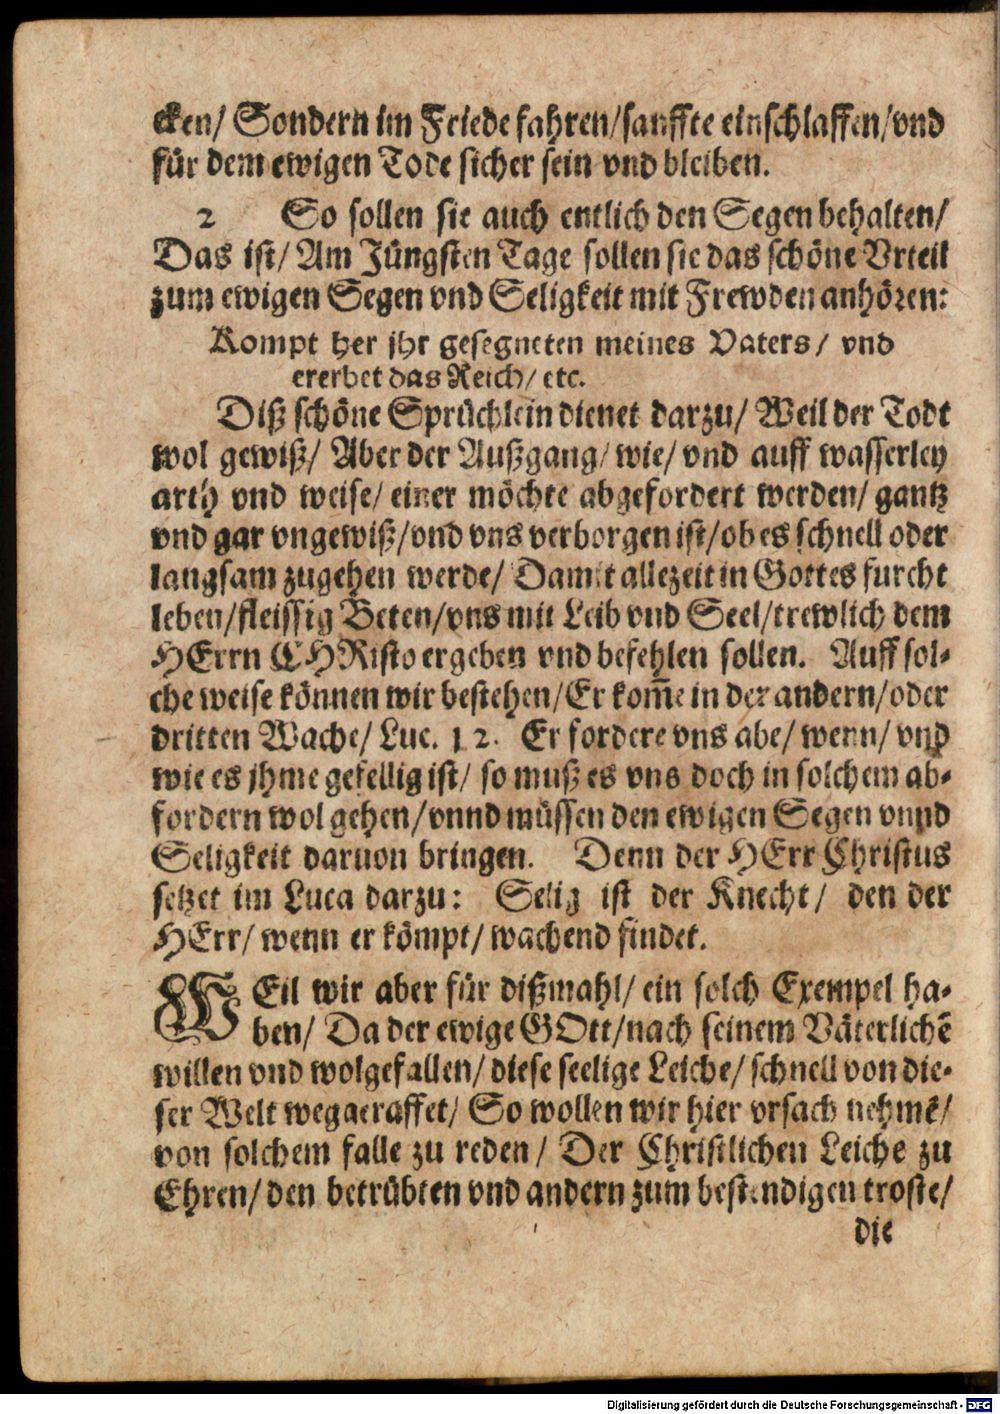 cken/ Sondern im Friede fahren/ sanffte einschlaffen/ vnd
für dem ewigen Tode sicher sein vnd bleiben.
2 So sollen sie auch entlich den Segen behalten/
Das ist/ Am Jüngsten Tage sollen sie das schöne Vrteil
zum ewigen Segen vnd Seligkeit mit Frewden anhören:
Kompt her jhr gesegneten meines Vaters/ vnd
ererbet das Reich/ etc.
Diß schöne Sprüchlein dienet darzu/ Weil der Todt
wol gewiß/ Aber der Außgang/ wie/ vnd auff wasserley
arth vnd weise/ einer möchte abgefordert werden/ gantz
vnd gar vngewiß/ vnd vns verborgen ist/ ob es schnell oder
langsam zugehen werde/ Damit allezeit in Gottes furcht
leben/ fleissig Beten/ vns mit Leib vnd Seel/ trewlich dem
HErrn CHRisto ergeben vnd befehlen sollen. Auff sol-
che weise können wir bestehen/ Er kom̄e in der andern/ oder
dritten Wache/ Luc. 12. Er fordere vns abe/ wenn/ vnd
wie es jhme gefellig ist/ so muß es vns doch in solchem ab-
fordern wol gehen/ vnnd müssen den ewigen Segen vnnd
Seligkeit daruon bringen. Denn der HErr Christus
setzet im Luca darzu: Selig ist der Knecht/ den der
HErr/ wenn er kömpt/ wachend findet.
WEil wir aber für dißmahl/ ein solch Exempel ha-
ben/ Da der ewige GOtt/ nach seinem Väterlichē
willen vnd wolgefallen/ diese seelige Leiche/ schnell von die-
ser Welt weggeraffet/ So wollen wir hier vrsach nehmē/
von solchem falle zu reden/ Der Christlichen Leiche zu
Ehren/ den betrübten vnd andern zum bestendigen troste/
die
Digitalisierung gefördert durch die Deutsche Forschungsgemeinschaft - DFG